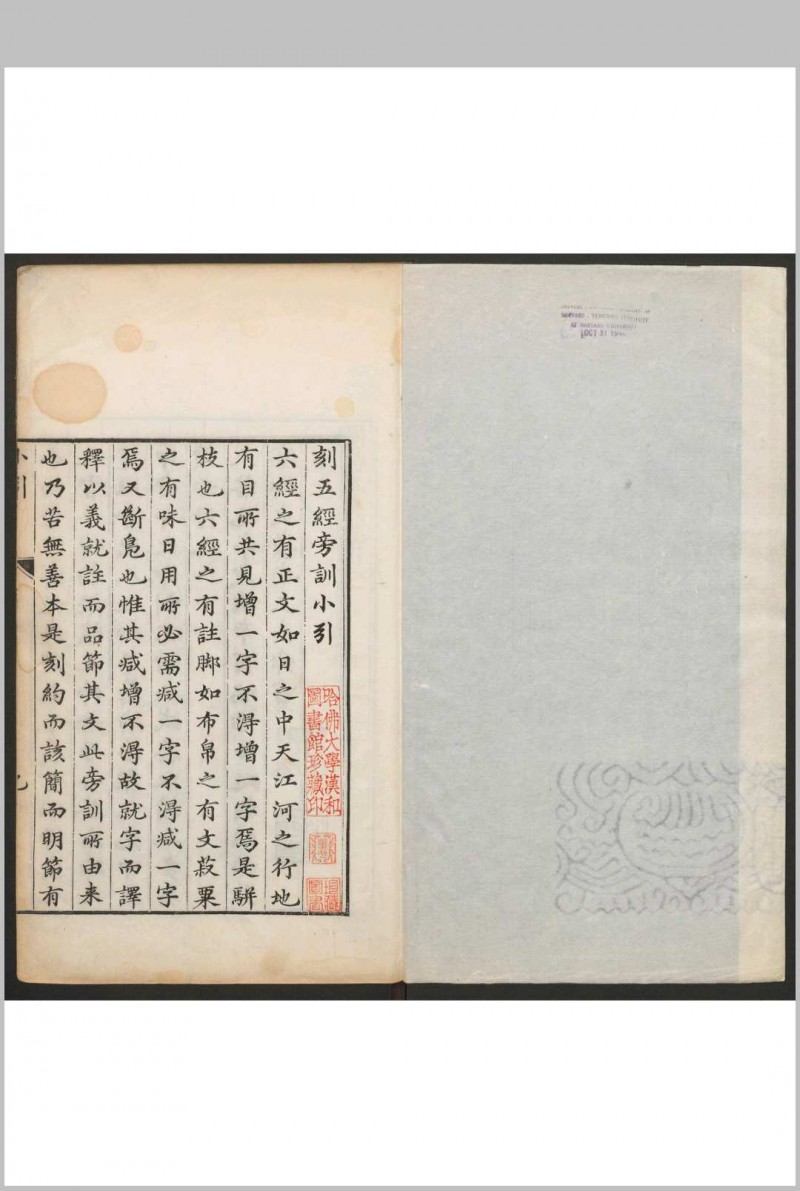 刻五經旁訓小引
哈佛大學漢和
圖書館珍藏印
六經之有正文如日之中天江河之行地
有目所共見增一字不得增一字焉是駢
枝也六經之有註脚如布帛之有文菽粟
之有味日用所必需减一字不得减一字
焉又斷鳧也惟其减增不得故就字而譯
釋以義就註而品節其文此旁訓所由来
也乃苦無善本是刻約而該簡而明節有
小引